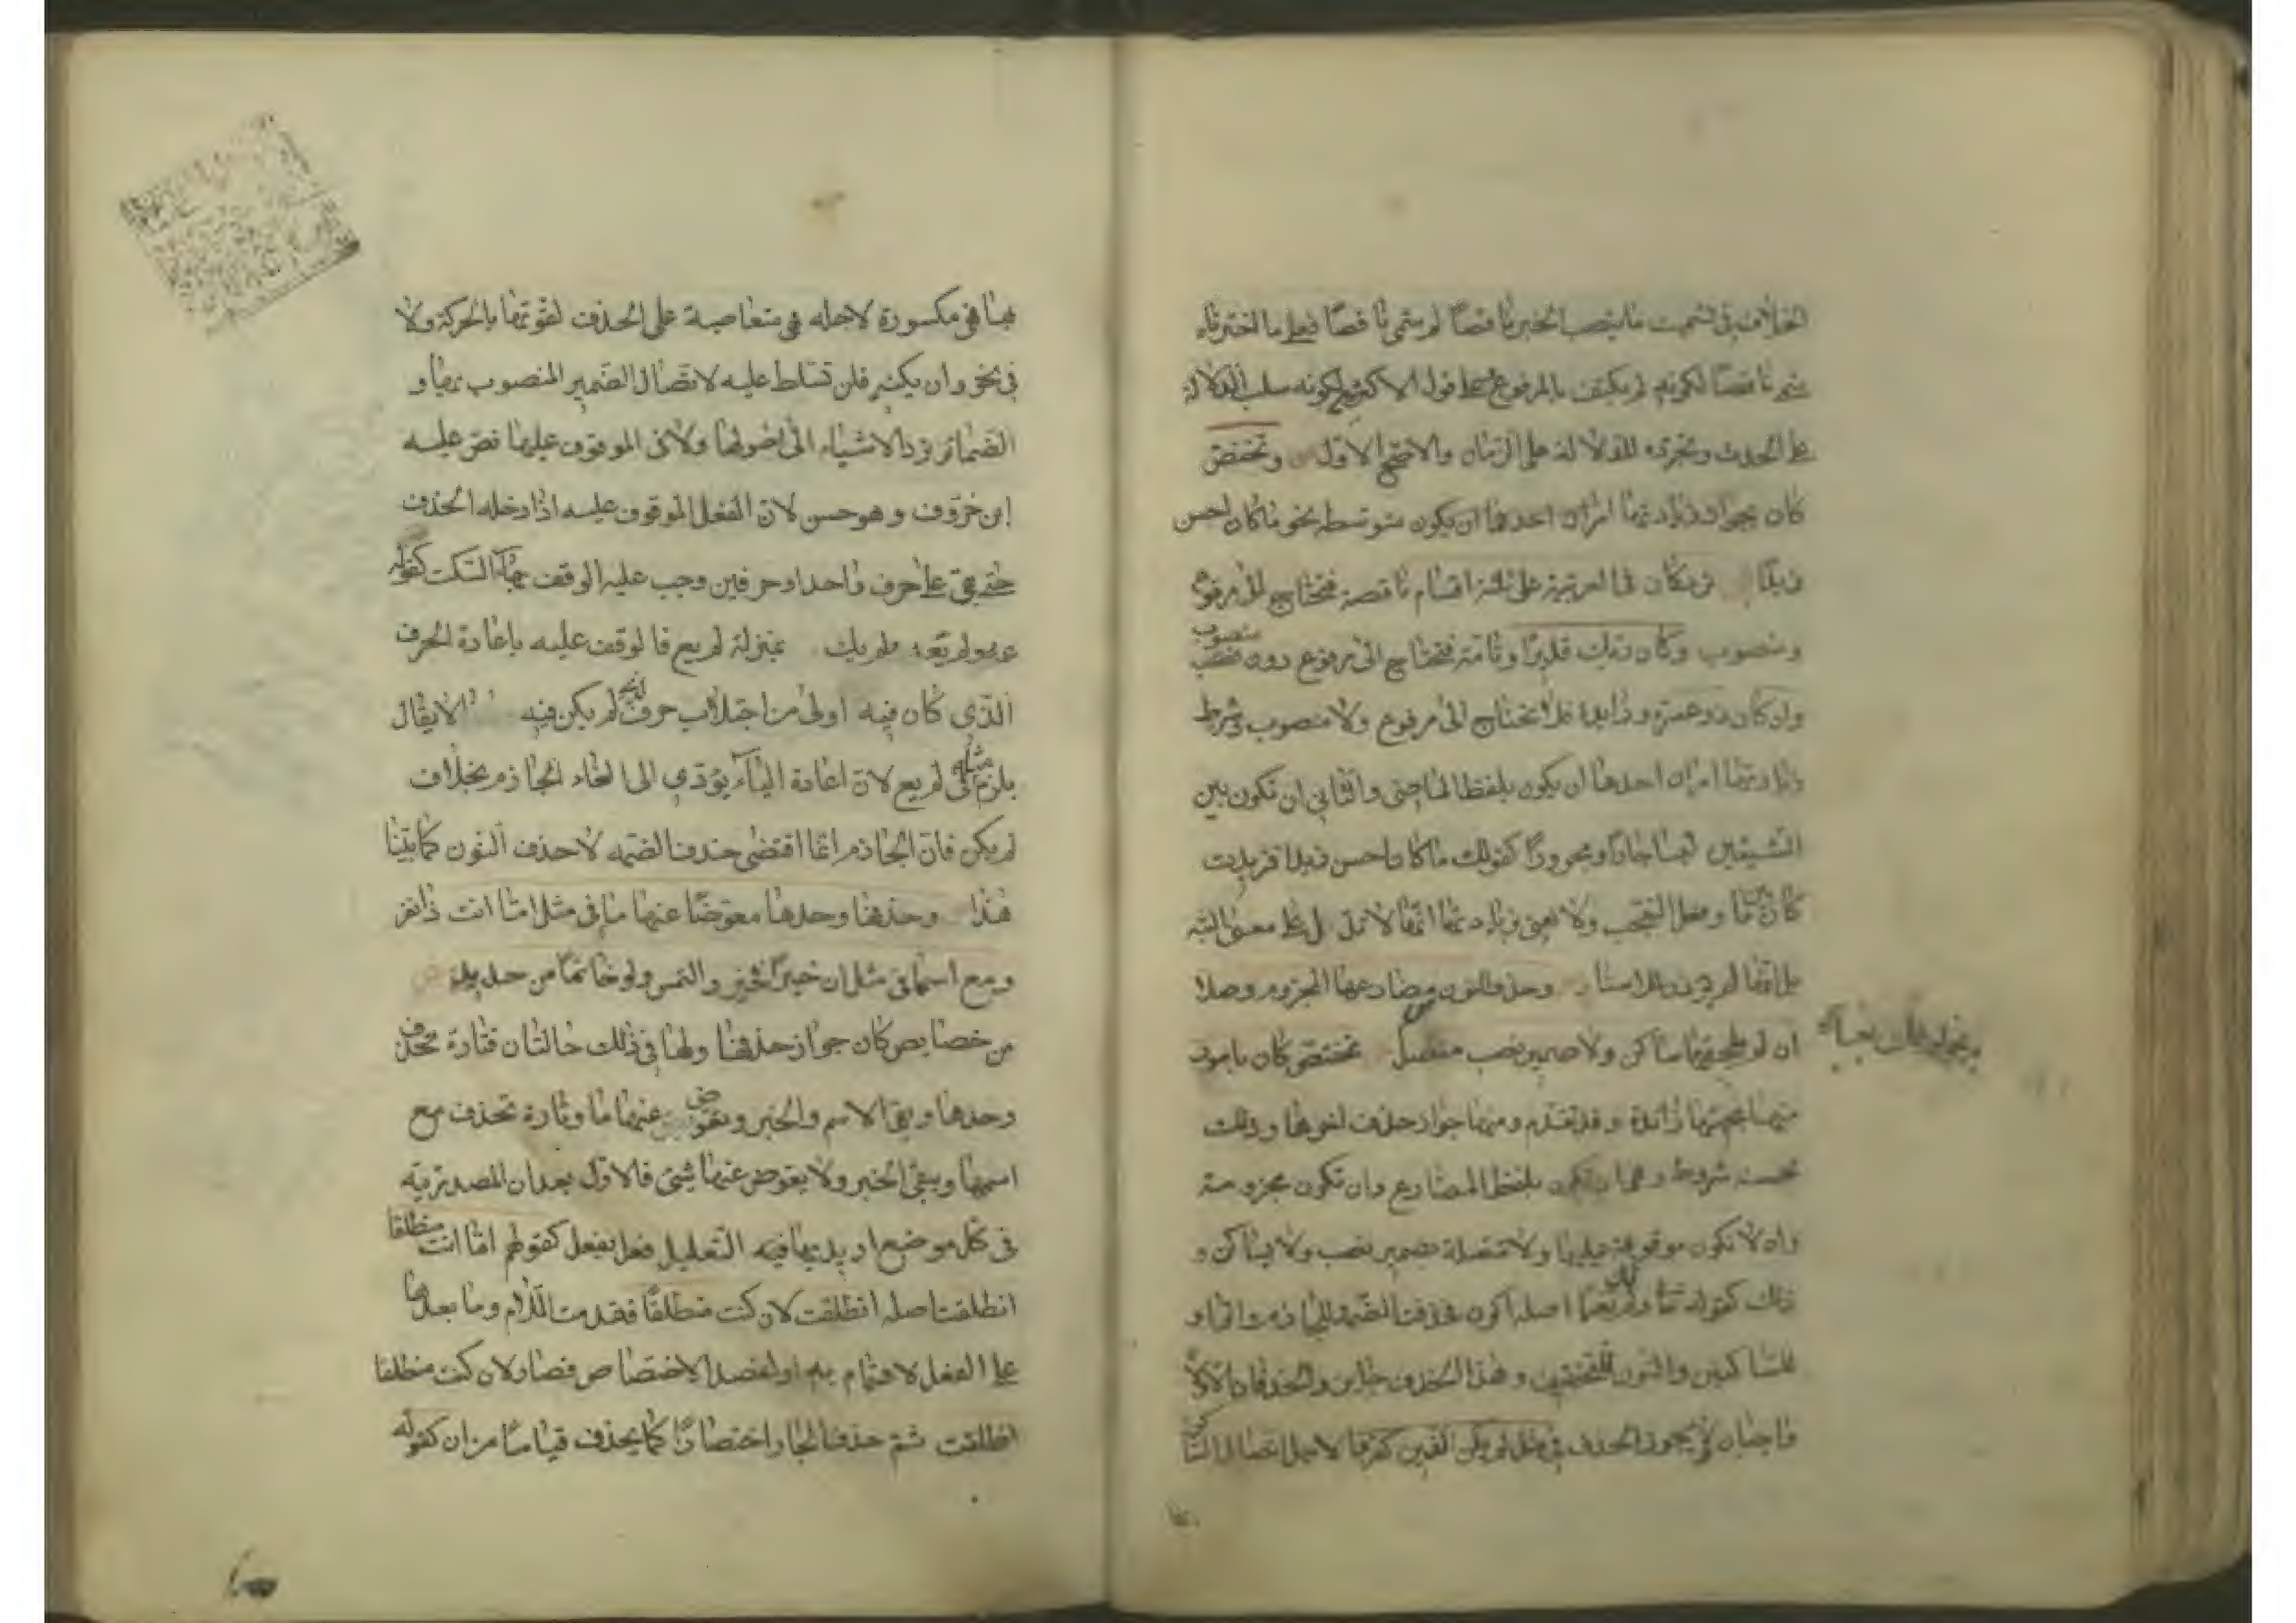 الخلاف في تسمية ما ينصب الخبر ناقصًا لم سمي ناقصًا فعلى ما اختر ناه
سمي ناقصًا لكونه لم يكتف بالمرفوع وعلى قول الاكثرين لكونه سلب الدلالة
على الحدث وتجرده للدلالة على الزمان والاصح الاول وتختص
كان بجواز زيادتها امران احدهما ان يكون متوسطه نحو ما كان احسن
زيدًا ترد كان في العربية على ثلثة اقسام ناقصة فتحتاج الى مرفوع
ومنصوب وكان ربك قديرًا وتامة فتحتاج الى مرفوع دون منصوب
وان كان ذو عسرة وزايدة فلا تحتاج الى مرفوع ولا منصوب وشرط
زيادتها امران احدهما ان يكون بلفظ الماضي والثاني ان تكون بين
الشيئين ليسا جارًا ومجرورًا كقولك ما كان احسن زيدا فزيدت
كان بين ما وفعل التعجب ولا نعني بزيادتها انها لا تدل على معنى البتة
بل انها لم يؤت بها للاسناد وحذف النون مضارعها المجزوم وصلا
ان لم يلحقها ساكن ولا ضمير نصب متصل تختص كان بامور
منها مجيئها زائدة وقد تقدم ومنها جواز حذف اخرها وذلك
بخمسة شروط وهي ان تكون بلفظ المضارع وان تكون مجزومة
وان لا تكون موقوفة عليها ولا متصلة بضمير نصب ولا بساكن و
ذلك كقوله تعا ولم اك بغيا اصله اكون فحذفت الضمة للجازم والواو
للساكنين والنون للتخفيف وهذا الحذف جايز والحذفان الاولان
واجبان ولا يجوز الحذف في نحو لم يكن الذين كفروا لاجل اتصال الساكن
بها
بها فهي مكسورة لاجله فهي متعاصية على الحذف لقوتها بالحركة ولا
في نحو وان يكنه فلن تسلط عليه لاتصال الضمير المنصوب بها و
الضمائر ترد الاشياء الى اصولها ولا في الموقوف عليها نص عليه
ابن خروف وهو حسن لان الفعل الموقوف عليه اذا دخله الحذف
حتى بقي على حرف واحد او حرفين وجب عليه الوقف بهاء السكت كقوله
عه ولم يعه ولم يك بمنزلة لم يع فالوقف عليه باعادة الحرف
الذي كان فيه اولى من اجتلاب حرف لم يكن فيه لا يقال
يلزم مثله في لم يع لان اعادة الياء يؤدي الى الغاء الجازم بخلاف
لم يكن فان الجازم انما اقتضى حذف الضمه لا حذف النون كما بينا
هذا وحذفها وحدها معوضًا عنها ما في مثل اما انت ذا نفر
ومع اسمها في مثل ان خيرًا فخير والتمس ولو خاتمًا من حديد
من خصايص كان جواز حذفها ولها في ذلك حالتان فتارة تحذف
وحدها ويبقى الاسم والخبر ويعوض عنها ما وتارة تحذف مع
اسمها ويبقى الخبر ولا يعوض عنها شئ فالاول بعد ان المصدرية
في كل موضع اريد بها فيه التعليل فعل بفعل كقولهم اما انت منطلقا
انطلقت اصله انطلقت لان كنت منطلقًا فقدمت اللام وما بعدها
على الفعل لاهتمام به او لقصد الاختصاص فصار لان كنت منطلقا
انطلقت ثم حذف الجار اختصارًا كما يحذف قياسًا من ان كقوله